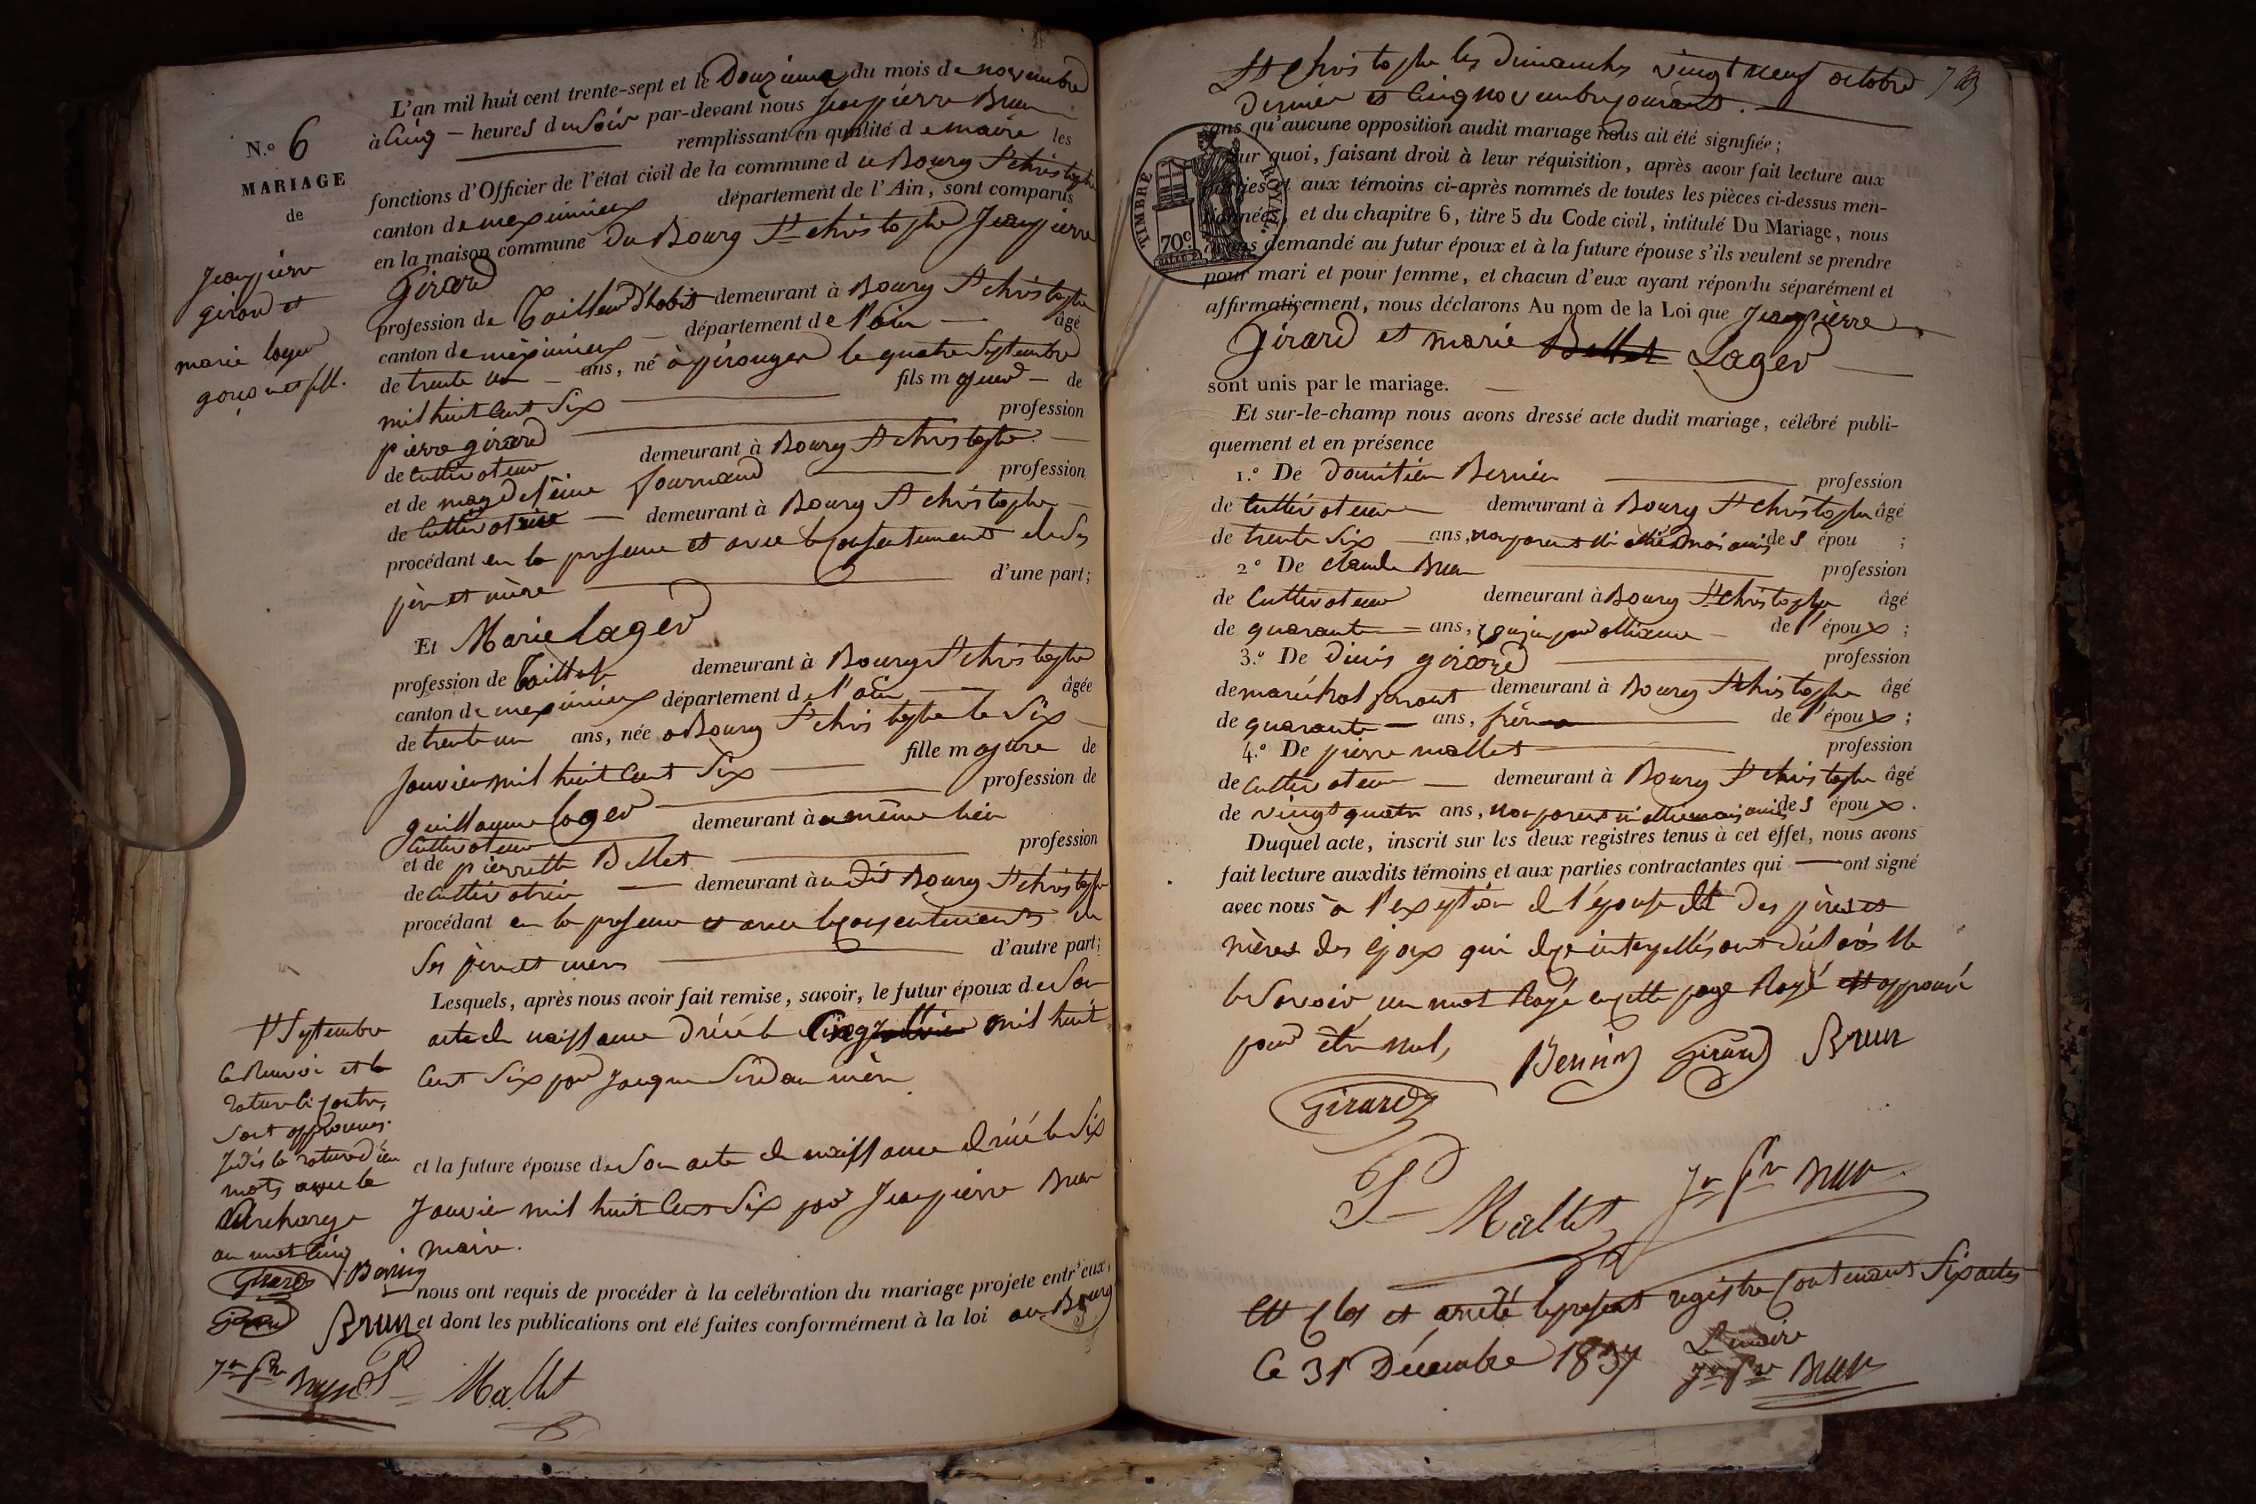 N.o 6
MARIAGE
de
Jeanpierre
girard et
marie lager
garçon et fille.
L'an mil huit cent trente-sept et le Douzieme du mois de novembre
à Cinq heures du Soir par-devant nous Jeanpierre Brun
remplissant en qualité de maire les
fonctions d'Officier de l'état civil de la commune de Bourg St christophe
canton de meximieux département de l'Ain, sont comparus
en la maison commune Du Bourg St christophe Jeanpierre
Girard
profession de Tailleur d'habits demeurant à Bourg St christophe
canton de meximieux département de l'ain âgé
de trente un ans, né à pérouges le quatre Septembre
mil huit Cent Six fils majeur de
pierre girard profession
de Cultivateur demeurant à Bourg St christophe
et de magdeleine fournand profession
de Cultivatrice demeurant à Bourg St christophe
procédant en la presence et avec le consentement de Ses
père et mère d'une part;
Et Marie Lager
profession de Tailleuse demeurant à Bourg St christophe
canton de meximieux département de l'ain âgée
de trente un ans, née a Bourg St christophe le Six
Janvier mil huit Cent Six fille majeure de
guillaume lager profession de
Cultivateur demeurant à u même lieu
et de pierrette Bellet profession
de Cultivatrice demeurant à u dit Bourg St christophe
procédant en la presence et avec le consentement de
Ses père et mère d'autre part;
Lesquels, après nous avoir fait remise, savoir, le futur époux de Son
acte de naissance Délivré le Cinq mil huit
Cent Six par Jacques maire
et la future épouse de Son acte de naissance délivré le Six
Janvier mil huit Cent Six par Jeanpierre Brun
maire.
nous ont requis de procéder à la célébration du mariage projeté entr'eux,
et dont les publications ont été faites conformément à la loi au Bourg
Septembre
le Renvoi et la
rature Ci contre,
Sont approuvés.
la rature d'un
mots avec la
Surcharge
au mot Cinq
Girard Bernin
Girard Brun
Jn Pre Brun P Mallet
St Christophe les dimanches vingt neuf octobre
dernier et Cinq novembre courant.
sans qu'aucune opposition audit mariage nous ait été signifiée;
sur quoi, faisant droit à leur réquisition, après avoir fait lecture aux
parties et aux témoins ci-après nommés de toutes les pièces ci-dessus men-
tionnées, et du chapitre 6, titre 5 du Code civil, intitulé Du Mariage, nous
avons demandé au futur époux et à la future épouse s'ils veulent se prendre
pour mari et pour femme, et chacun d'eux ayant répondu séparément et
affirmativement, nous déclarons Au nom de la Loi que Jeanpierre
Girard et marie Bellet Lager
sont unis par le mariage.
TIMBRE ROYAL.
70c
Et sur-le-champ nous avons dressé acte dudit mariage, célébré publi-
quement et en présence
1.o De Domitien Bernin profession
de Cultivateur demeurant à Bourg St christophe âgé
de trente Six ans, non parent ni allié mais ami des épou ;
2o De claude Brun profession
de Cultivateur demeurant à Bourg St christophe âgé
de quarante ans, cousin par alliance de l'époux ;
3.o De Dinis girard profession
de maréchal ferrant demeurant à Bourg St christophe âgé
de quarante ans, frère de l'époux ;
4.o De pierre mallet profession
de Cultivateur demeurant à Bourg St christophe âgé
de vingt quatre ans, non parent ni allié mais ami des époux .
Duquel acte, inscrit sur les deux registres tenus à cet effet, nous avons
fait lecture auxdits témoins et aux parties contractantes qui ont signé
avec nous a l'exception de l'épouse et Des pères et
mères des époux qui de ce interpellés ont déclaré ne
le Savoir un mot Rayé en cette page Rayé approuvé
pour être nul,
Bernin Girard Brun
Girard
P Mallet Jn Pre Brun
Clos et arreté le present registre Contenant Six actes
Ce 31 Décembre 1837 Le maire
Jn Pre Brun